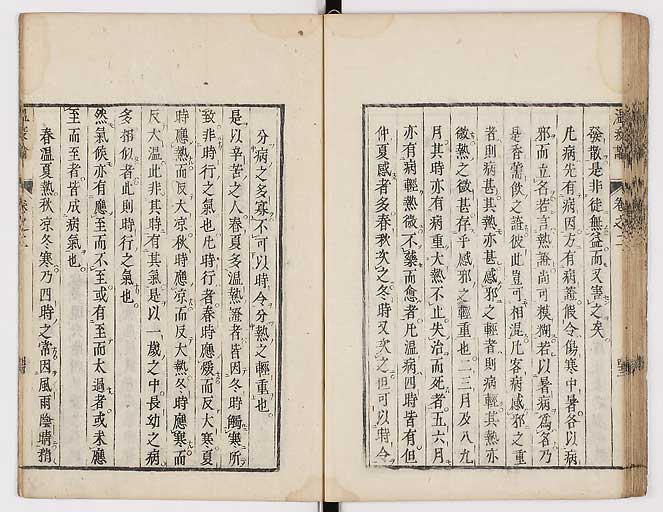 發散是非徒無益而又害之矣
凡病先有病因方有病證假令傷寒中暑各以病
邪而立名若言熱證尚可模糊若以暑病為名乃
是香薷飲之證彼此豈可相混凡客病感邪之重
者則病甚其熱亦甚感邪之輕者則病輕其熱亦
微熱之微甚存乎感邪之輕重也二三月及八九
月其時亦有病重大熱不止失治而死者五六月
亦有病輕熱微不藥而愈者凡溫病四時皆有但
仲夏感者多春秋次之冬時又次之但可以時令
分病之多寡不可以時令分熱之輕重也
是以辛苦之人春夏多溫熱證者皆因冬時觸寒所
致非時行之氣也凡時行者春時應暖而反大寒夏
時應熱而反大涼秋時應涼而反大熱冬時應寒而
反大溫此非其時有其氣是以一歲之中長幼之病
多相似者此則時行之氣也
然氣候亦有應至而不至或有至而太過者或未應
至而至者皆成病氣也
春溫夏熱秋涼冬寒乃四時之常因風雨陰晴稍